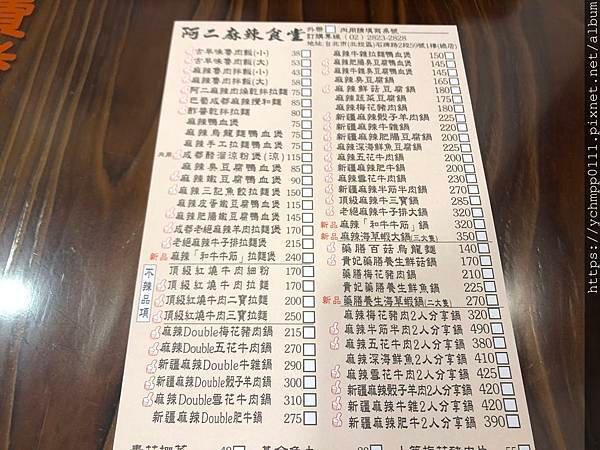 阿二麻辣食堂
外帶 內用請填寫桌號
訂購專線 (02) 2823-2828
地址:台北市(北投區)石牌路2段59號1樓(總店)
古早味魯肉飯(小) 38
古早味魯肉飯(大) 53
麻辣魯肉拌飯(小) 43
麻辣魯肉拌飯(大) 58
阿二麻辣肉燥乾拌拉麵 75
巴蜀成都麻辣攪和麵 85
酢醬乾拌拉麵 75
麻辣鴨血煲 75
麻辣烏龍麵鴨血煲 75
麻辣手工拉麵鴨血煲 75
內用 成都醋溜涼粉煲(涼) 115
麻辣臭豆腐鴨血煲 85
麻辣嫩豆腐鴨血煲 90
麻辣三記魚餃拉麵煲 150
麻辣皮香嫩豆腐鴨血煲 115
麻辣肥腸嫩豆腐鴨血煲 145
成都老絕麻辣羊肉拉麵煲 170
老絕麻辣牛子排拉麵煲 170
新品 麻辣「和牛牛筋」拉麵煲 240
不辣品項
頂級紅燒牛肉細粉 170
頂級紅燒牛肉拉麵 170
頂級紅燒牛肉二寶拉麵 200
頂級紅燒牛肉三寶拉麵 250
麻辣Double梅花豬肉鍋 215
麻辣Double五花牛肉鍋 270
新疆麻辣Double牛雜鍋 290
新疆麻辣Double骰子羊肉鍋 300
麻辣Double雪花牛肉鍋 310
新疆麻辣Double肥牛鍋 275
麻辣牛雜拉麵鴨血煲 150
麻辣肥腸臭豆腐鴨血煲 145
麻辣牛雜臭豆腐鴨血煲 155
麻辣臭豆腐鍋 165
麻辣鮮菇豆腐鍋 180
麻辣蔬菜豆腐鍋 175
麻辣梅花豬肉鍋 180
新疆麻辣骰子羊肉鍋 225
新疆麻辣牛雜鍋 220
新疆麻辣肥腸豆腐鍋 225
麻辣深海鮮魚豆腐鍋 225
麻辣五花牛肉鍋 200
新疆麻辣肥牛鍋 200
麻辣雪花牛肉鍋 230
新疆麻辣半筋半肉鍋 270
頂級麻辣牛三寶鍋 285
老絕麻辣牛子排大鍋 320
新品 麻辣「和牛牛筋」鍋 320
新品 麻辣海草蝦大鍋(三大隻) 350
藥膳百菇烏龍麵 140
貴妃藥膳養生鮮菇鍋 170
藥膳梅花豬肉鍋 210
貴妃藥膳養生鮮魚鍋 210
新品 藥膳養生海草蝦鍋(二大隻) 270
麻辣梅花豬肉2人分享鍋 320
麻辣半筋半肉2人分享鍋 490
麻辣五花牛肉2人分享鍋 380
麻辣深海鮮魚2人分享鍋 410
麻辣雪花牛肉2人分享鍋 425
新疆麻辣骰子羊肉2人分享鍋 425
新疆麻辣牛雜2人分享鍋 420
新疆麻辣肥牛2人分享鍋 390
https://ychmpp0111.pixnet.net/album